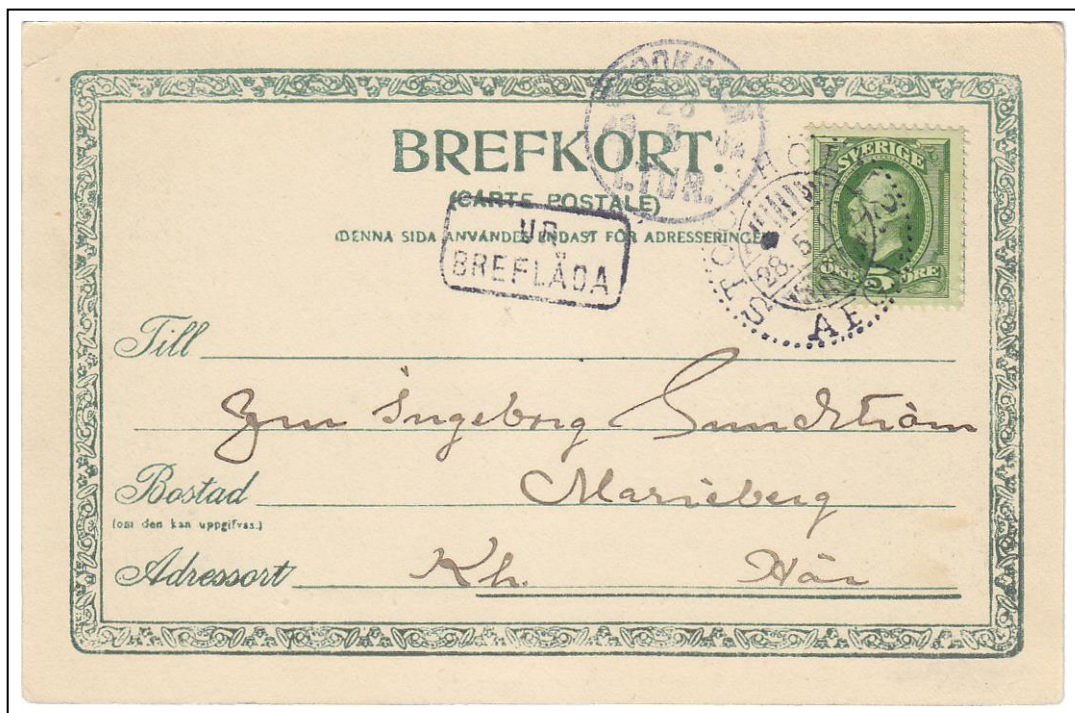 BREFKORT.
(CARTE POSTALE)
(DENNA SIDA ANVÄNDES ENDAST FÖR ADRESSERINGEN
UR
BREFLÅDA
SVERIGE
ÖRE 5 ÖRE
28. 5
1.TUR.
Till
Ingeborg Sundström
Bostad Marieberg
(om den kan uppgifvas.)
Adressort Kh. Här